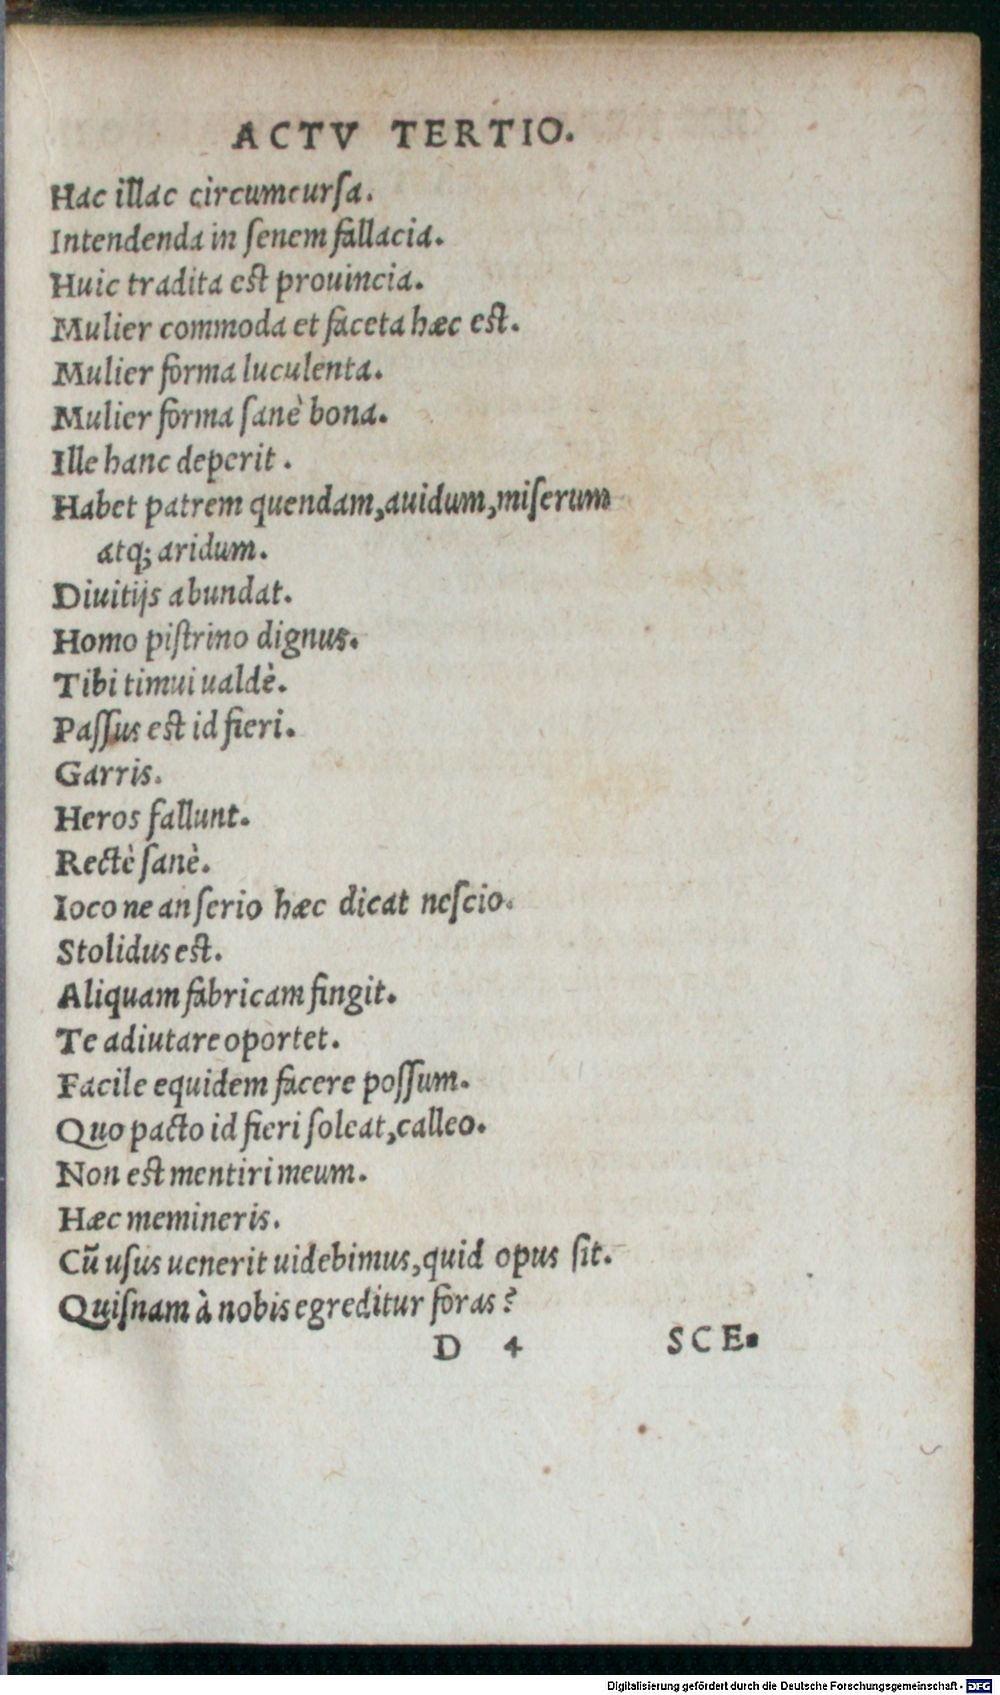 ACTV TERTIO.
Hac illac circumcursa.
Intendenda in senem fallacia.
Huic tradita est prouincia.
Mulier commoda et faceta hæc est.
Mulier forma luculenta.
Mulier forma sanè bona.
Ille hanc deperit.
Habet patrem quendam, auidum, miserum
atq; aridum.
Diuitijs abundat.
Homo pistrino dignus.
Tibi timui ualdè.
Passus est id fieri.
Garris.
Heros fallunt.
Rectè sanè.
Ioco ne an serio hæc dicat nescio.
Stolidus est.
Aliquam fabricam fingit.
Te adiutare oportet.
Facile equidem facere possum.
Quo pacto id fieri soleat, calleo.
Non est mentiri meum.
Hæc memineris.
Cū usus uenerit uidebimus, quid opus sit.
Quisnam à nobis egreditur foras?
D 4 SCE.
Digitalisierung gefördert durch die Deutsche Forschungsgemeinschaft - DFG